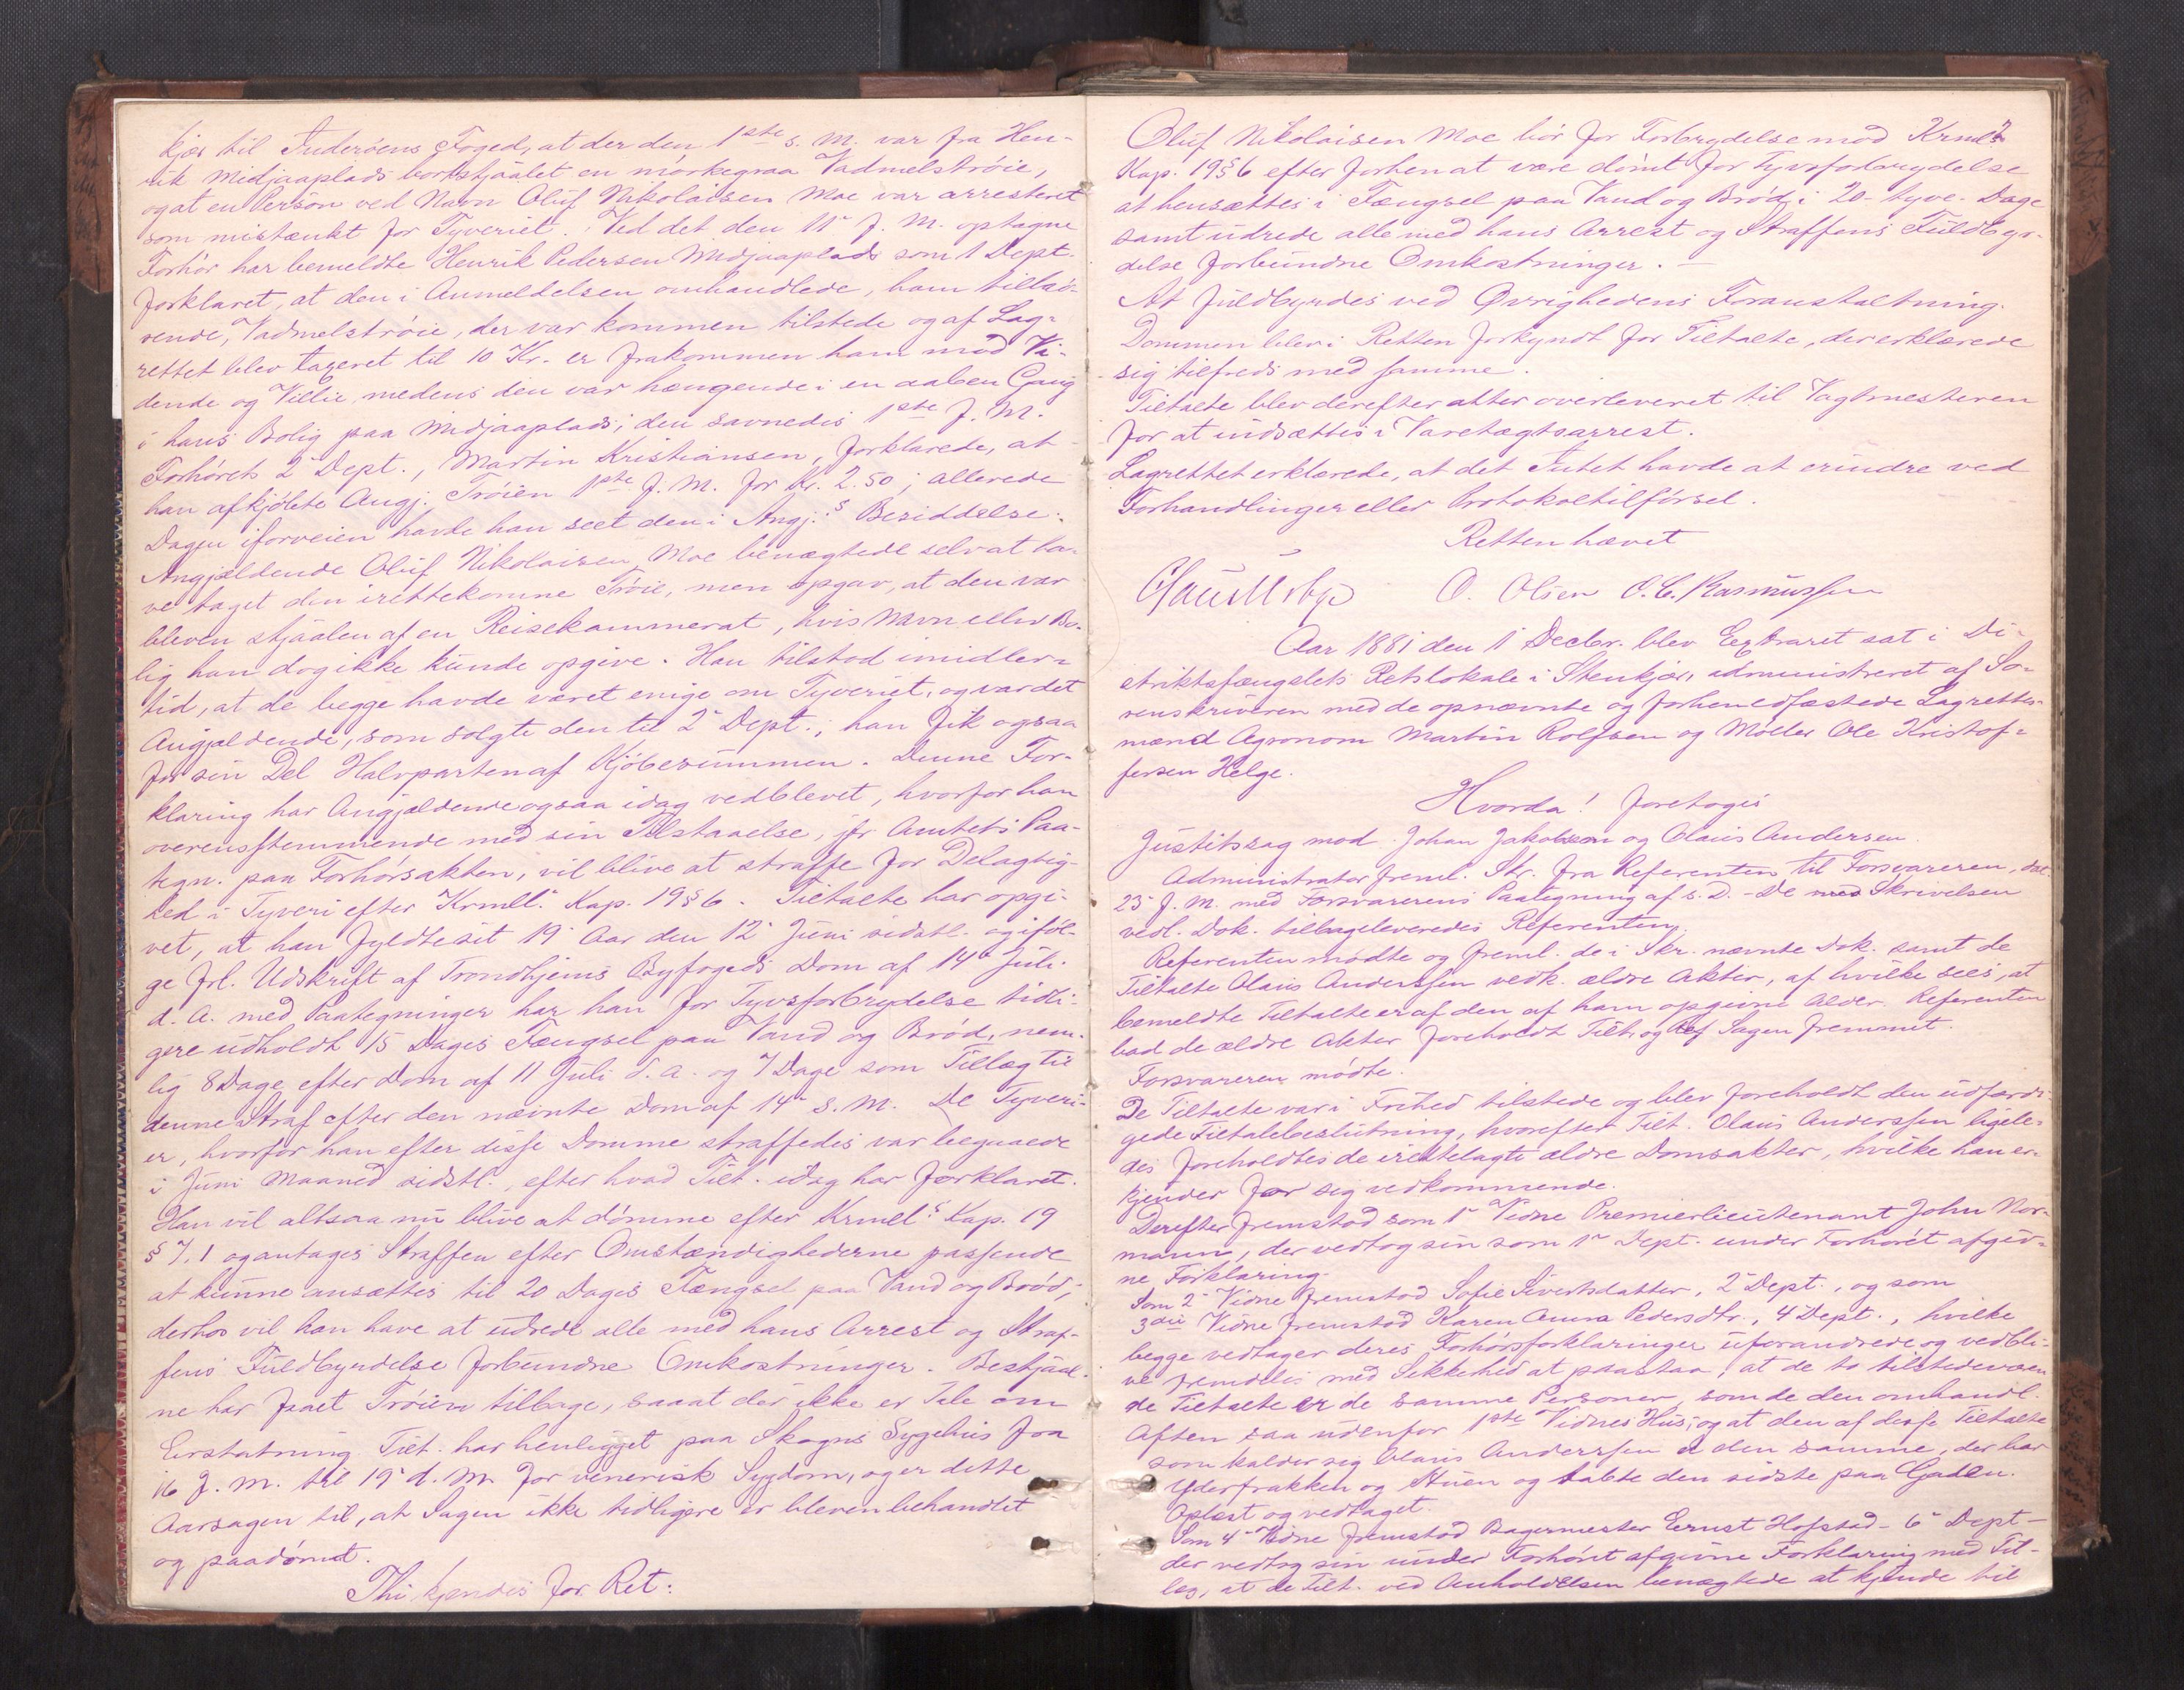 kjær til Inderøens Foged, at der den 1ste s. M. var fra Hen-
rik Midjaaplads bortstjaalet en mørkegraa Vadmelstrøie,
og at en Person ved Navn Oluf Nikolaisen Moe var arresteret
som mistænkt for Tyveriet. Ved det den 11te f. M. optagne
Forhør har bemeldte Henrik Pedersen Midjaaplads som 1 Dept.
forklaret, at den i Anmeldelsen omhandlede, ham tilhø-
rende, Vadmelstrøie, der var kommen tilstede og af Lag-
rettet blev taxeret til 10 Kr. er frakommen ham mod Vi-
dende og Villie, medens den var hængende i en aaben Gang
i hans Bolig paa Midjaaplads; den savnedes 1ste f. M.
Forhørets 2 Dept., Martin Kristiansen, forklarede, at
han afkjøbte Angj. Trøien 1ste f. M. for Kr. 2.50; allerede
Dagen iforveien havde han seet den i Angj.s Besiddelse.
Angjældende Oluf Nikolaisen Moe benægtede selv at ha-
ve taget den irettekomne Trøie, men opgav, at den var
bleven stjaalen af en Reisekammerat, hvis Navn eller Bo-
lig han dog ikke kunde opgive. Han tilstod imidler-
tid, at de begge havde været enige om Tyveriet, og var det
Angjældende, som solgte den til 2 Dept.; han fik ogsaa
for sin Del Halvparten af Kjøbesummen. Denne For-
klaring har Angjældende ogsaa idag vedblevet, hvorfor han
overensstemmende med sin Tilstaaelse, jfr Amtets Paa-
tegn. paa Forhørsakten, vil blive at straffe for Delagtig-
hed i Tyveri efter Krmll. Kap. 19 § 6. Tiltalte har opgi-
vet, at han fyldte sit 19 Aar den 12 Juni sidstl. og iføl-
ge frl. Udskrift af Trondhjems Byfogeds Dom af 14 Juli
d. A. med Paategninger har han for Tyvsforbrydelse tidli-
gere udholdt 15 Dages Fængsel paa Vand og Brød, nem-
lig 8 Dage efter Dom af 11 Juli d. A. og 7 Dage som Tillæg til
denne Straf efter den nævnte Dom af 14 s. M. De Tyveri-
er, hvorfor han efter disse Domme straffedes var begaaede
i Juni Maaned sidstl., efter hvad Tilt. idag har forklaret.
Han vil altsaa nu blive at dømme efter Krmll.s Kap. 19
§ 7, 1 og antages Straffen efter Omstændighederne passende
at kunne ansættes til 20 Dages Fængsel paa Vand og Brød;
derhos vil han have at udrede alle med hans Arrest og Straf-
fens Fuldbyrdelse forbundne Omkostninger. Bestjaal-
ne har faaet Trøien tilbage, saaat der ikke er Tale om
Erstatning. Tilt. har henligget paa Skogns Sygehus fra
16 f. M. til 19 d. M. for venerisk Sygdom, og er dette
Aarsagen til, at Sagen ikke tidligere er bleven behandlet
og paadømt.
Thi kjendes for Ret:
Oluf Nikolaisen Moe bør for Forbrydelse mod Krmls
Kap. 19 § 6 efter forhen at være dømt for Tyvsforbrydelse
at hensættes i Fængsel paa Vand og Brød i 20 - tyve - Dage
samt udrede alle med hans Arrest og Straffens Fuldbyr-
delse forbundne Omkostninger. -
At fuldbyrdes ved Øvrighedens Foranstaltning.
Dommen blev i Retten forkyndt for Tiltalte, der erklærede
sig tilfreds med samme.
Tiltalte blev derefter atter overleveret til Vagtmesteren
for at indsættes i Varetægtsarrest.
Lagrettet erklærede, at det Intet havde at erindre ved
Forhandlinger eller Protokoltilførsel.
Retten hævet
O. Olsen O. C. Rasmussen
Aar 1881 den 1 Decbr. blev Extraret sat i Di-
striktsfængslets Retslokale i Stenkjær, administreret af So-
renskriveren med de opnævnte og forhen edfæstede Lagrettes-
mænd Agronom Martin Rolfsen og Møller Ole Kristof-
fersen Helge.
Hvorda! foretoges
Justitssag mod Johan Jakobsen og Olaus Andersen.
Administrator freml. Skr. fra Referenten til Forsvareren, dat.
25 f. M. med Forsvarerens Paategning af s. D. - De med Skrivelsen
vedl. Dok. tilbageleveredes Referenten.
Referenten mødte og freml. de i Skr. nævnte Dok. samt de
Tiltalte Olaus Anderssen vedk. ældre Akter, af hvilke sees, at
bemeldte Tiltalte er af den af ham opgivne Alder. Referenten
bad de ældre Akter foreholdt Tilt. og Sagen fremmet.
Forsvareren mødte.
De Tiltalte var i Frihed tilstede og blev foreholdt den udfærdi-
gede Tiltalebeslutning, hvorefter Tilt. Olaus Anderssen ligele-
des foreholdtes de irettelagte ældre Domsakter, hvilke han er-
kjender for sig vedkommende.
Derefter fremstod som 1 Vidne Premierlieutenant John Nor-
mann, der vedtog sin som 1 Dept. under Forhøret afgiv-
ne Forklaring.
Som 2 Vidne fremstod Sofie Sivertsdatter, 2 Dept., og som
3die Vidne fremstod Karen Anna Pedersdtr., 4 Dept., hvilke
begge vedtager deres Forhørsforklaringer uforandrede og vedbli-
ve fremdeles med Sikkerhed at paastaa, at de to tilstedeværen
de Tiltalte er de samme Personer, som de den omhandl.
Aften saa udenfor 1ste Vidnes Hus, og at den af disse Tiltalte
som kalder sig Olaus Anderssen er den samme, der har
Yderfrakken og Huen og tabte den sidste paa Gaden.
Oplæst og vedtaget.
Som 4 Vidne fremstod Bagermester Ernst Hofstad - 6 Dept -
der vedtog sin under Forhøret afgivne Forklaring med Til-
læg, at de Tilt. ved Anholdelsen benægtede at kjende til